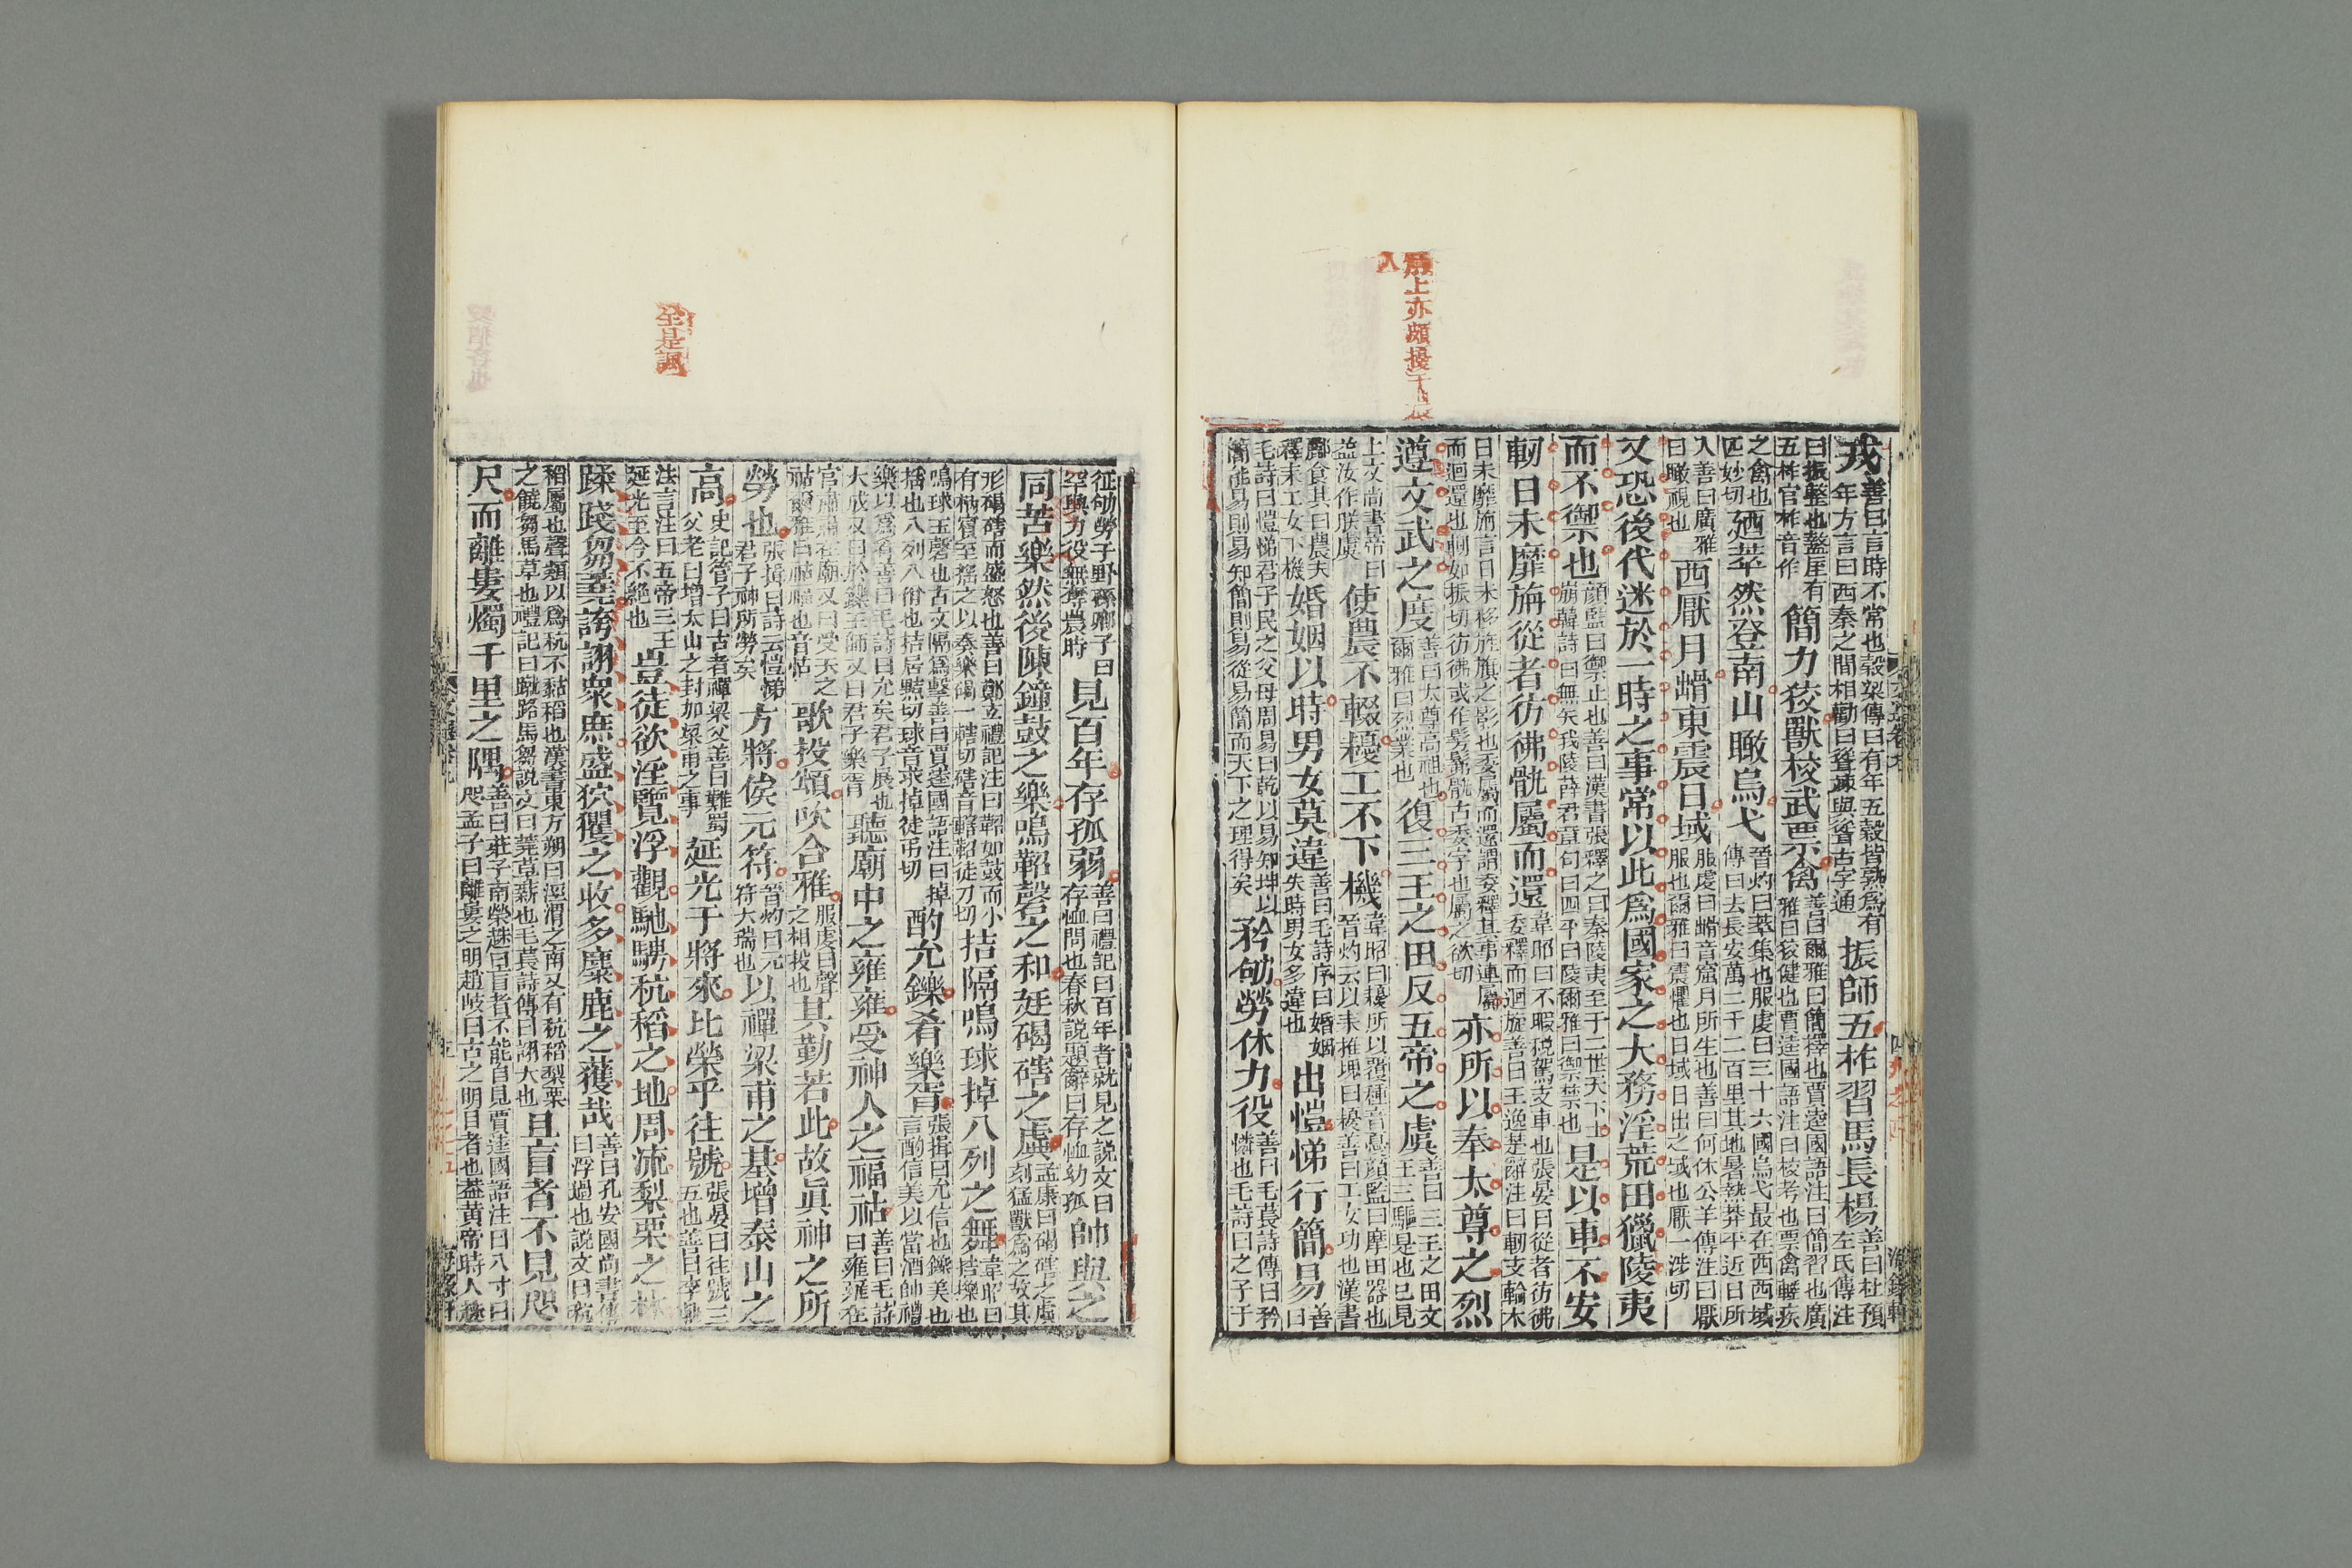 屬上亦頗擾于農
人
戎善曰言時不常也穀梁傳曰有年五穀皆熟爲有
年方言曰西秦之間相勸曰聳竦與聳古字通
振師五柞習馬長楊善曰杜預
左氏傳注
曰振整也盩厔有
五柞宮柞音作
簡力狡獸校武票禽善曰爾雅曰簡擇也賈逵國語注曰簡習也廣
雅曰狡健也賈逵國語注曰校考也票禽輕疾
之禽也
匹妙切
迺萃然登南山瞰烏弋晉灼曰萃集也服虔曰三十六國烏弋最在西西域
傳曰去長安萬二千二百里其地暑熱莽平近日所
入善曰廣雅
曰瞰視也
西厭月䠰東震日域服虔曰䠰音窟月所生也善曰何休公羊傳注曰厭
服也爾雅曰震懼也日域日出之域也厭一涉切
又恐後代迷於一時之事常以此爲國家之大務淫荒田獵陵夷
而不禦也顔監曰禦止也善曰漢書張釋之曰秦陵夷至于二世天下土
崩韓詩曰無矢我陵薛君章句曰四平曰陵爾雅曰禦禁也
是以車不安
軔日未靡旃從者彷彿骫屬而還韋昭曰不暇稅駕支車也張晏曰從者彷彿
委釋而迴旋善曰王逸楚辭注曰軔支輪木
日未靡旃言日未移旌旗之影也委屬而還謂委釋其事連屬
而迴還也軔如振切彷彿或作髣髴骫古委字也屬之欲切
亦所以奉太尊之烈
遵文武之度善曰太尊高祖也
爾雅曰烈業也
復三王之田反五帝之虞善曰三王之田文
王三驅是也已見
上文尚書帝曰
益汝作朕虞
使農不輟耰工不下機韋昭曰耰所以覆種音憂顔監曰摩田器也
晉灼云以耒推塊曰耰善曰工女功也漢書
酈食其曰農夫
釋耒工女下機
婚姻以時男女莫違善曰毛詩序曰婚姻
失時男女多違也
出愷悌行簡易善
曰
毛詩曰愷悌君子民之父母周易曰乾以易知坤以
簡能易則易知簡則易從易簡而天下之理得矣
矜劬勞休力役善曰毛萇詩傳曰矜
憐也毛詩曰之子于
至是諷
征劬勞于野孫卿子曰
罕興力役無奪農時
見百年存孤弱善曰禮記曰百年者就見之説文曰
存恤問也春秋説題辭曰存恤幼孤
帥與之
同苦樂然後陳鐘鼓之樂鳴鞀磬之和建碣磍之虡孟康曰碣磍之虡
刻猛獸爲之故其
形碣磍而盛怒也善曰鄭玄禮記注曰鞀如鼓而小
有柄賓至搖之以奏樂碣一轄切磍音轄鞀徒刀切
拮隔鳴球掉八列之舞韋昭曰
拮擽也
鳴球玉磬也古文隔爲擊善曰賈逵國語注曰掉
搖也八列八佾也拮居黠切球音求掉徒弔切
酌允鑠肴樂胥張揖曰允信也鑠美也
言酌信美以當酒帥禮
樂以爲肴善曰毛詩曰允矣君子展也
大成又曰於鑠王師又曰君子樂胥
聽廟中之雍雍受神人之福祜善曰毛詩
曰雍雍在
宮肅肅在廟又曰受天之
祜爾雅曰祜福也音怙
歌投頌吹合雅服虔曰聲
之相投也
其勤若此故眞神之所
勞也張揖曰詩云愷悌
君子神所勞矣
方將俟元符晉灼曰元
符大瑞也
以禪梁甫之基增泰山之
高史記管子曰古者禪梁父善曰難蜀
父老曰增太山之封加梁甫之事
延光于將來比榮乎往號張晏曰往號三
五也善曰李軌
法言注曰五帝三王
延光至今不絶也
豈徒欲淫覽浮觀馳騁秔稻之地周流梨栗之林
蹂踐芻蕘誇詡衆庶盛狖玃之收多麋鹿之獲哉善曰孔安國尚書傳
曰浮過也説文曰秔
稻屬也聲類以爲秔不黏稻也漢書東方朔曰涇渭之南又有秔稻梨栗
之饒芻馬草也禮記曰蹴路馬芻説文曰蕘草薪也毛萇詩傳曰詡大也
且盲者不見咫
尺而離婁燭千里之隅善曰莊子南榮趎曰盲者不能自見賈逵國語注曰八寸曰
咫孟子曰離婁之明趙岐曰古之明目者也葢黃帝時人趎